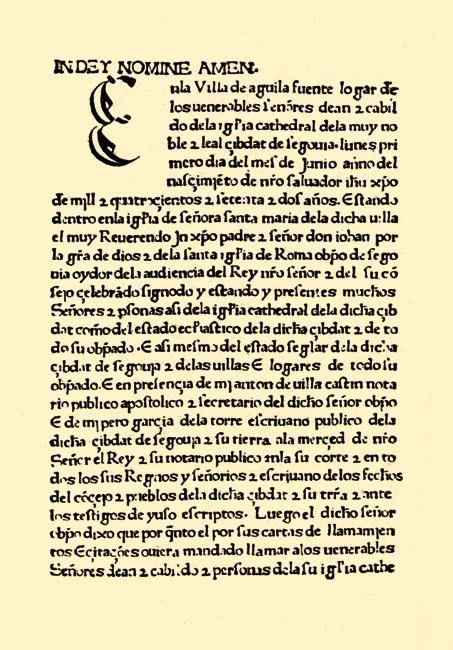 IN DEY NOMINE AMEN.
E nla Villa de aguila fuente logar de
los uenerables señõres dean ⁊ cabil
do dela igłia cathedral dela muy no
ble ⁊ leal çibdat de segouia. lunes pri
mero dia del mes de Junio anno del
nasçimiẽto de nr̃o saluador ihũ xp̃o
de mill ⁊ quatroçientos ⁊ setenta ⁊ dos años. Estando
dentro enla igłia de señora santa maria dela dicha uilla
el muy Reuerendo Jn xp̃o padre ⁊ señor don iohan por
la gr̃a de dios ⁊ dela santa igłia de Roma obp̃o de sego
uia oydor dela audiencia del Rey nr̃o señor ⁊ del su cõ
sejo çelebrãdo signodo y estando y presentes muchos
Señores ⁊ p̱sonas asi dela igłia cathedral dela dicha çib
dat com̃o del estado ecłiastico dela dicha çibdat ⁊ de to
do su obp̃ado. E asi mesmo del estado seglar dela dicha
çibdat de segouja ⁊ delas uillas E logares de todo su
obp̃ado. E en presençia de mj anton de uilla castin nota
rio publico apostolico ⁊ secretario del dicho señor obp̃o
E de mj pero garçia dela torre escriuano publico dela
dicha çibdat de segouja ⁊ su tierra ala merçed de nr̃o
Señor el Rey ⁊ su notario publico enla su corte ⁊ en to
dos los sus Regnos y señorios ⁊ escrjuano delos fechos
del cõçejo ⁊ pueblos dela dicha çibdat ⁊ su trr̃a ⁊ ante
los testigos de yuso escriptos. Luego el dicho señor
obp̃o dixo que por q̃nto el por sus cartas de llamamjen
tos E çitações ouiera mandado llamar alos uenerables
Señores dean ⁊ cabildo ⁊ personas dela su igłia cathe